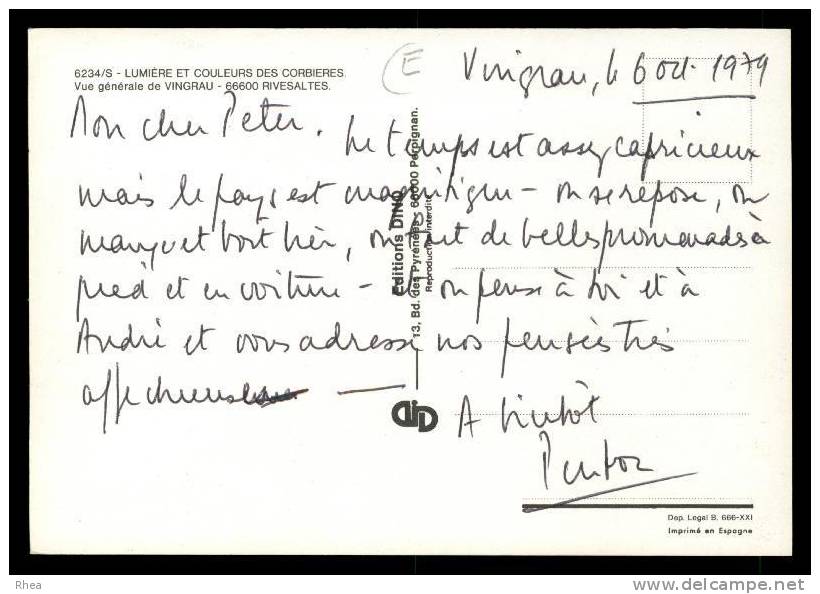 6234/S - LUMIÈRE ET COULEURS DES CORBIERES.
Vue générale de VINGRAU - 66600 RIVESALTES.
E
Vingrau, le 6 oct. 1979
Mon cher Peter. Le temps est assez capricieux
mais le pays est magnifique - on se repose, on
mange et boit bien, on fait de belles promenades à
pied et en voiture - et on pense à toi et à
André et vous adresse nos pensées très
affectueuses
A bientôt
Editions DINO
13, Bd. des Pyrénées - 66000 Perpignan.
Reproduction interdite
Dep. Legal B. 666-XXI
Imprimé en Espagne
Rhea
delcampe.net